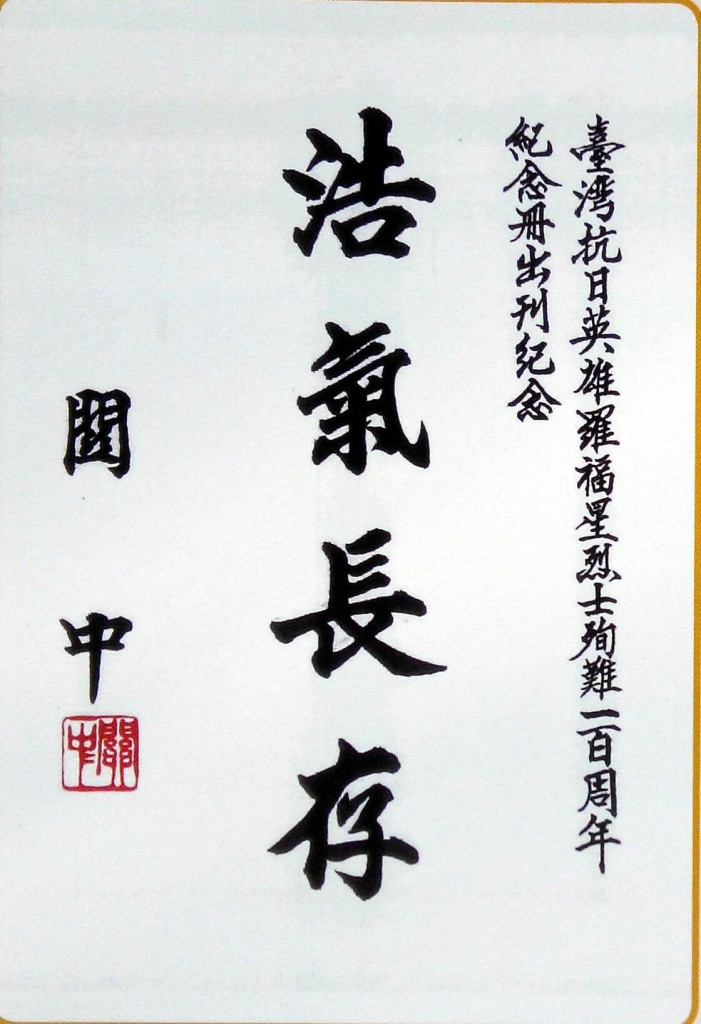 臺灣抗日英雄羅福星烈士殉難一百周年
紀念冊出刊紀念
浩氣長存
關中
關中